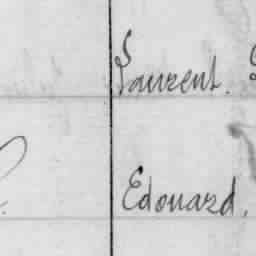 Laurent.
Edouard.